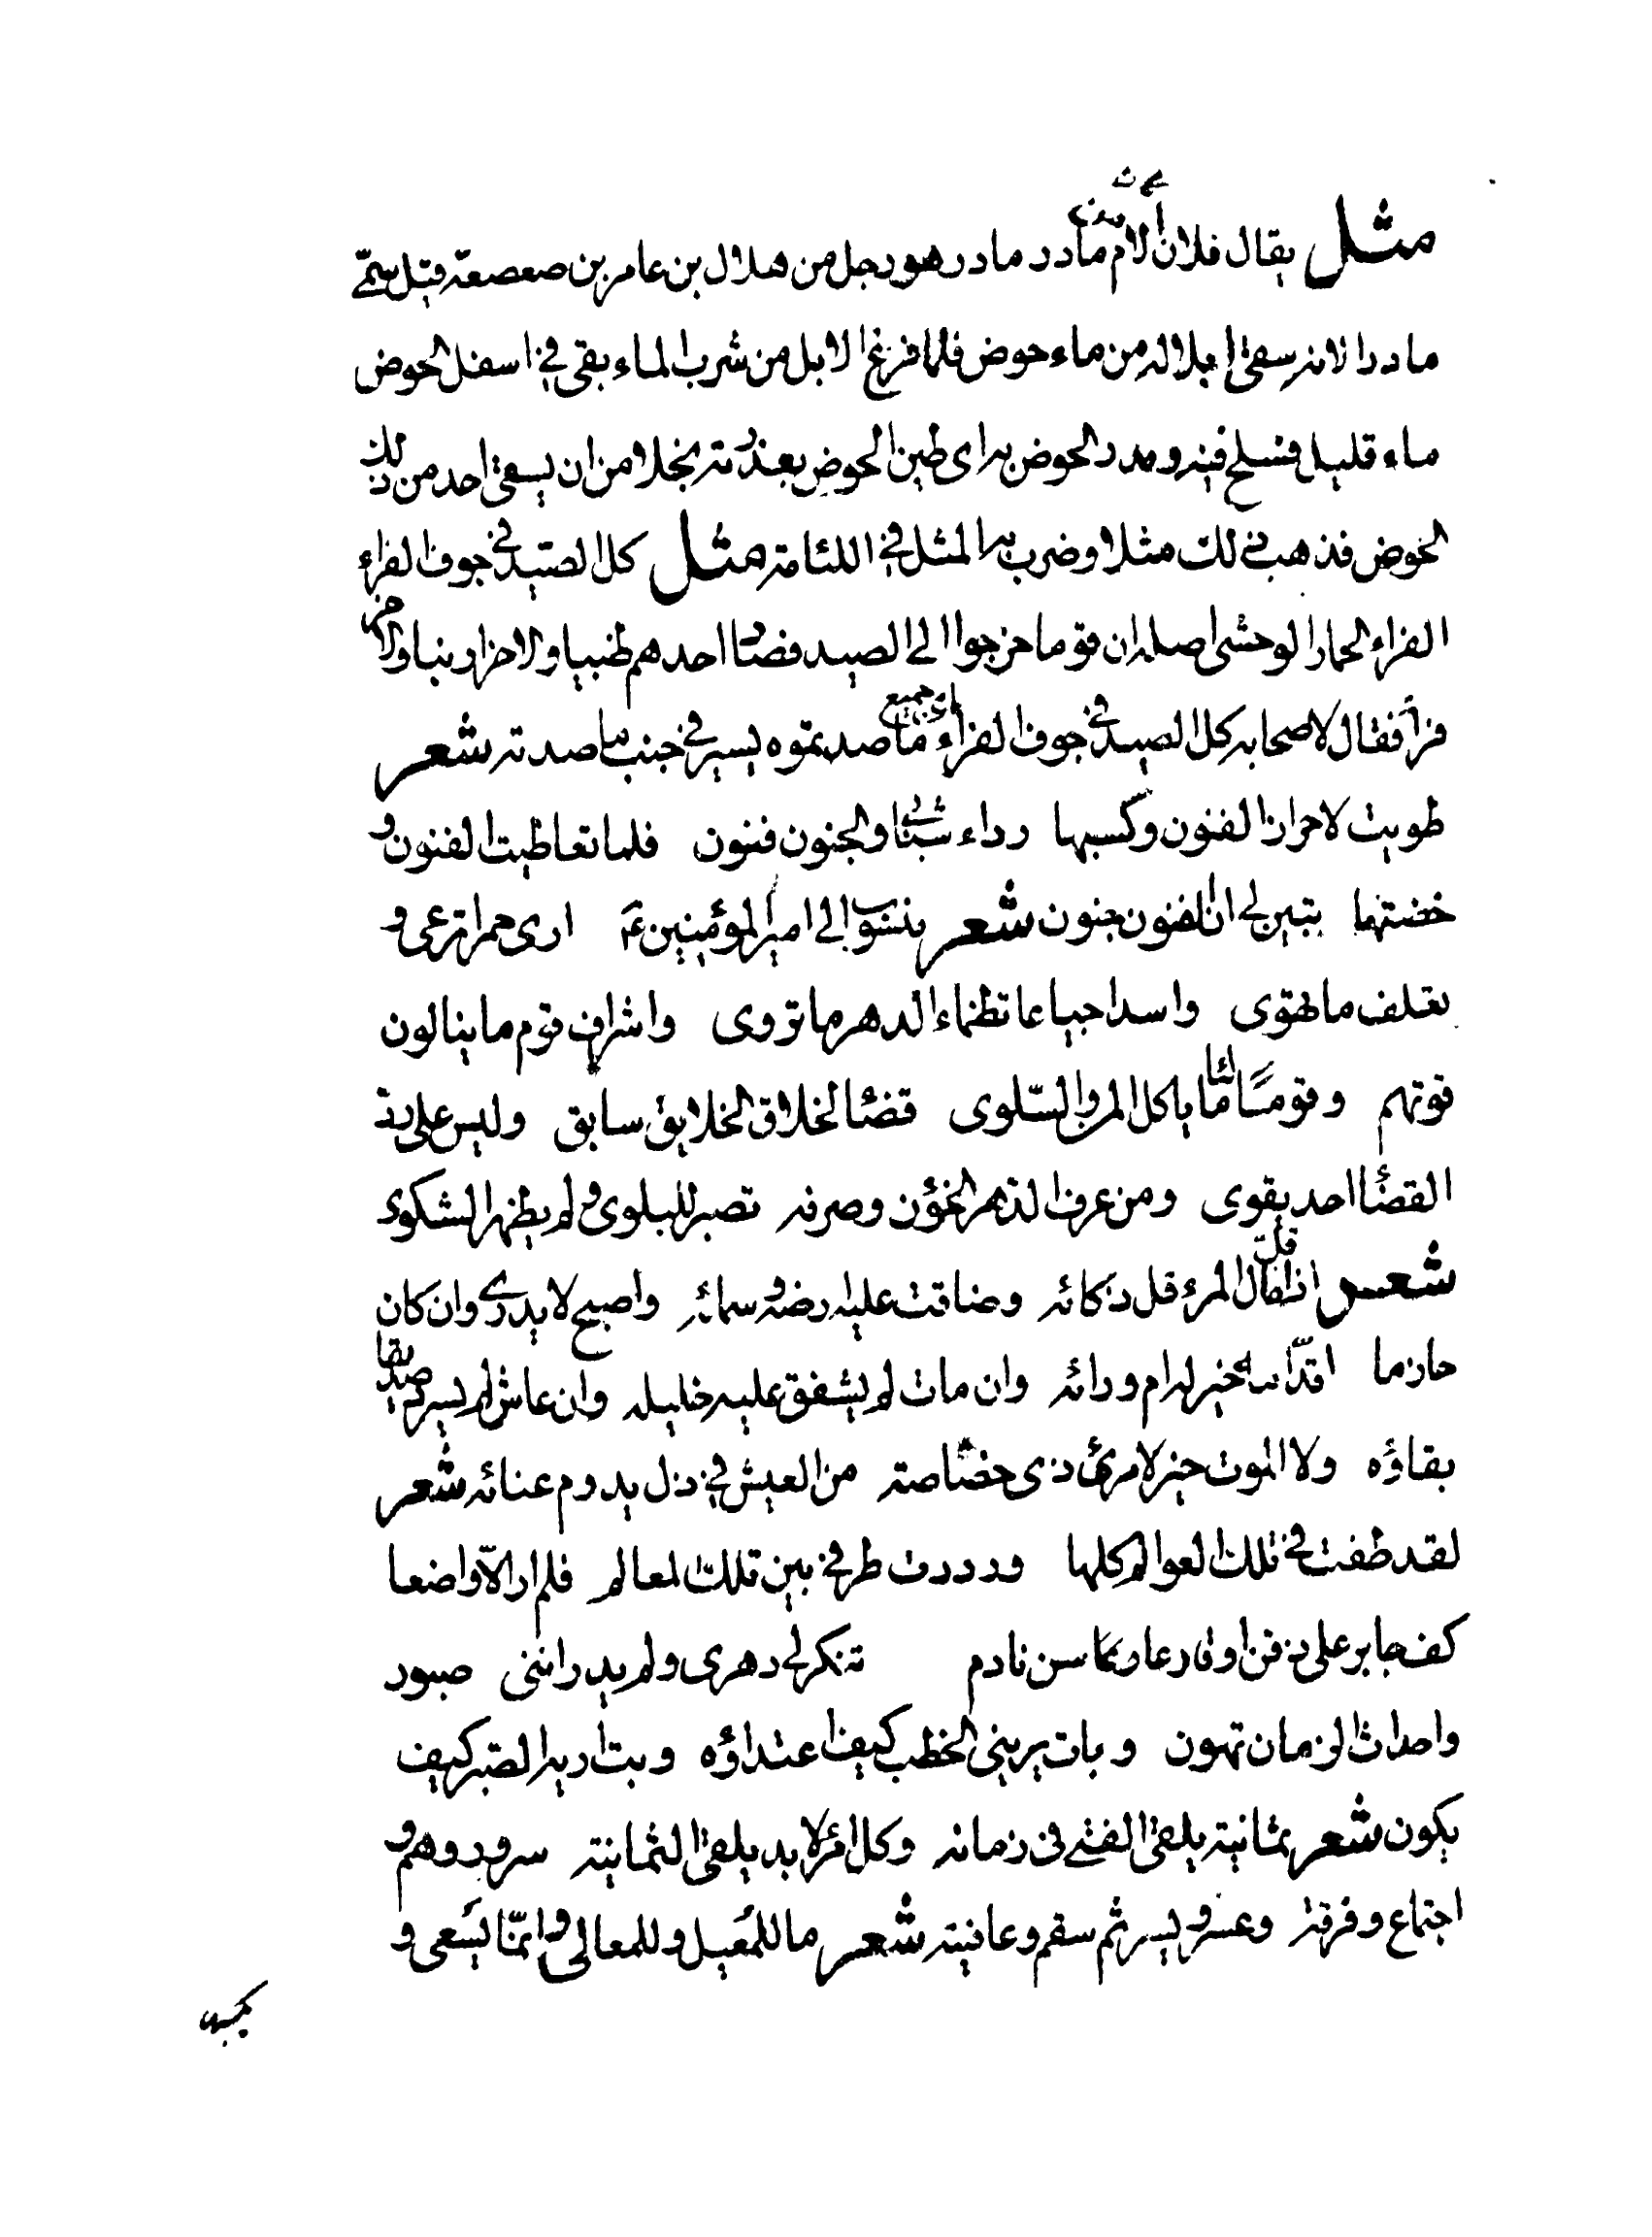 مثل يقال فلان ألام من مادر مادر هو رجل من هلال بن عامر بن صعصعة قيل سمّى
مادرا لانه سقى ابلا له من ماء حوض فلما فرغ الابل من شرب الماء بقى فى اسفل الحوض
ماء قليل فسلح فيه ومدر الحوض به اى طين الحوض بعذرته بخلا من ان يسقى احد من ذلك
الحوض فذهب ذلك مثلا وضرب به المثل فى اللئامة مثل كل الصيد فى جوف الفراء
الفراء الحمار الوحشى اصله ان قوما خرجوا الى الصيد فصاد احدهم ظبيا والاخر ارنبا والاخر
فرأ فقال لاصحابه كل الصيد فى جوف الفراء اى جميع ما صدتموه يسير فى جنب ما صدته شعر
طويت لاحراز الفنون وكسبها رداء شبابى والجنون فنون فلما تعاطيت الفنون و
خضتها تبين لى ان الفنون جنون شعر ينسب الى امير المؤمنين ع ارى حمرا ترعى و
تعلف ما تهوى واسدا جياعا تظماء الدهر ما تروى واشراف قوم ما ينالون
قوتهم وقوما لئاما ياكل المن والسّلوى قضاء لخلاق الخلايق سابق وليس على رد
القضاء احد يقوى ومن عرف الدهر الخؤن وصرفه تصبر للبلوى ولم يظهر الشكوى
شعر اذا قلّ مال المرء قل ذكائه وضاقت عليه ارضه وسمائه واصبح لا يدرى وان كان
حازما اقدّامه خير له ام ورائه وان مات لم يشفق عليه خليله وان عاش لم يسرر صديقا
بقاؤه ولا الموت خير لامرئ ذى خصاصة من العيش فى ذل يدوم عنائه شعر
لقد طفت فى تلك العوالم كلها ورددت طرفى بين تلك المعالم فلم ار الّا واضعا
كف حاير على ذقن او قارعا سن نادم تنكر لى دهرى ولم يدر اننى صبور
واحداث الزمان تهون وبات يرينى الخطب كيف اعتداؤه وبت اريه الصبر كيف
يكون شعر ثمانية يلقى الفتى فى زمانه وكل امرئ لا بد يلقى الثمانية سرور وهم و
اجتماع وفرقة وعسر ويسر ثم سقم وعافية شعر ما للمعيل وللمعالى وانّما يسعى و